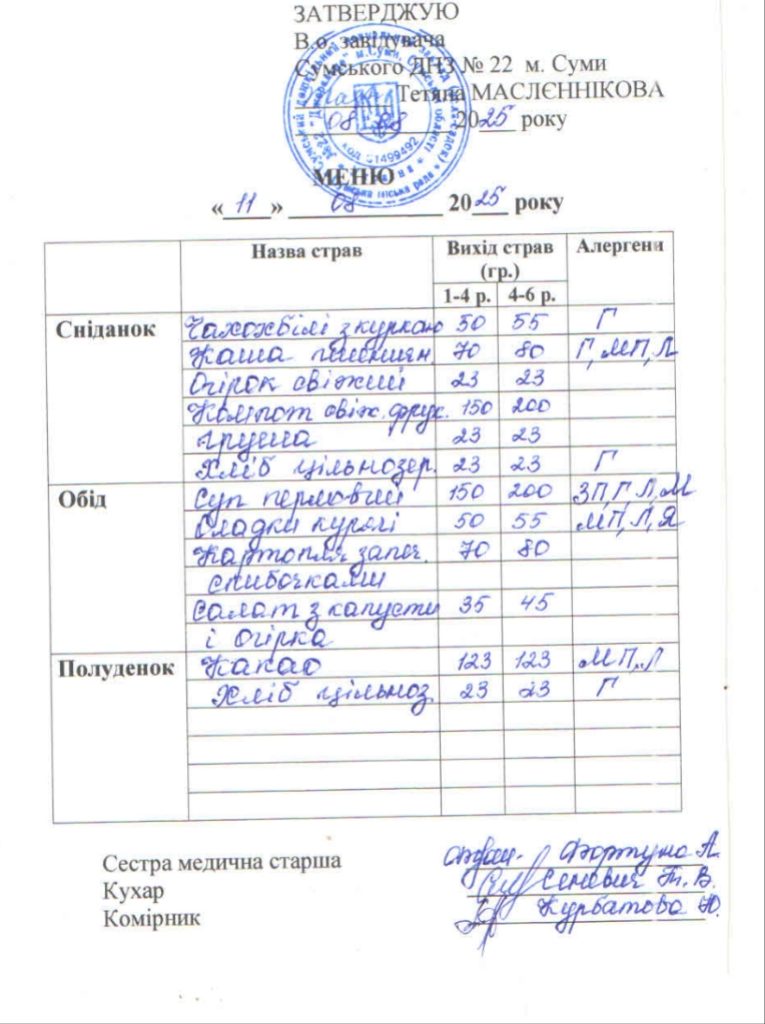 ЗАТВЕРДЖУЮ
В.о. завідувача
Сумського ДНЗ № 22 м. Суми
Тетяна МАСЛЄННІКОВА
08 08 2025 року
код 51499492
МЕНЮ
« 11 » 08 2025 року
Назва страв Вихід страв (гр.) Алергени
1-4 р. 4-6 р.
Сніданок Чахохбілі з куркою 50 55 Г
Каша пшеншян. 70 80 Г, МП, Л
Огірок свіжий 23 23
Компот свіж. фрук. 150 200
груша 23 23
Хліб цільнозер. 23 23 Г
Обід Суп перловий 150 200 ЗП, Г, Л, М
Оладки курячі 50 55 МП, Л, Я
Картопля запеч. 70 80
скибочками
Салат з капусти 35 45
і огірка
Полуденок Какао 123 123 МП, Л
Хліб цільноз. 23 23 Г
Сестра медична старша Фортуна А.
Кухар Сеневич Т. В.
Комірник Курбатова Ю.